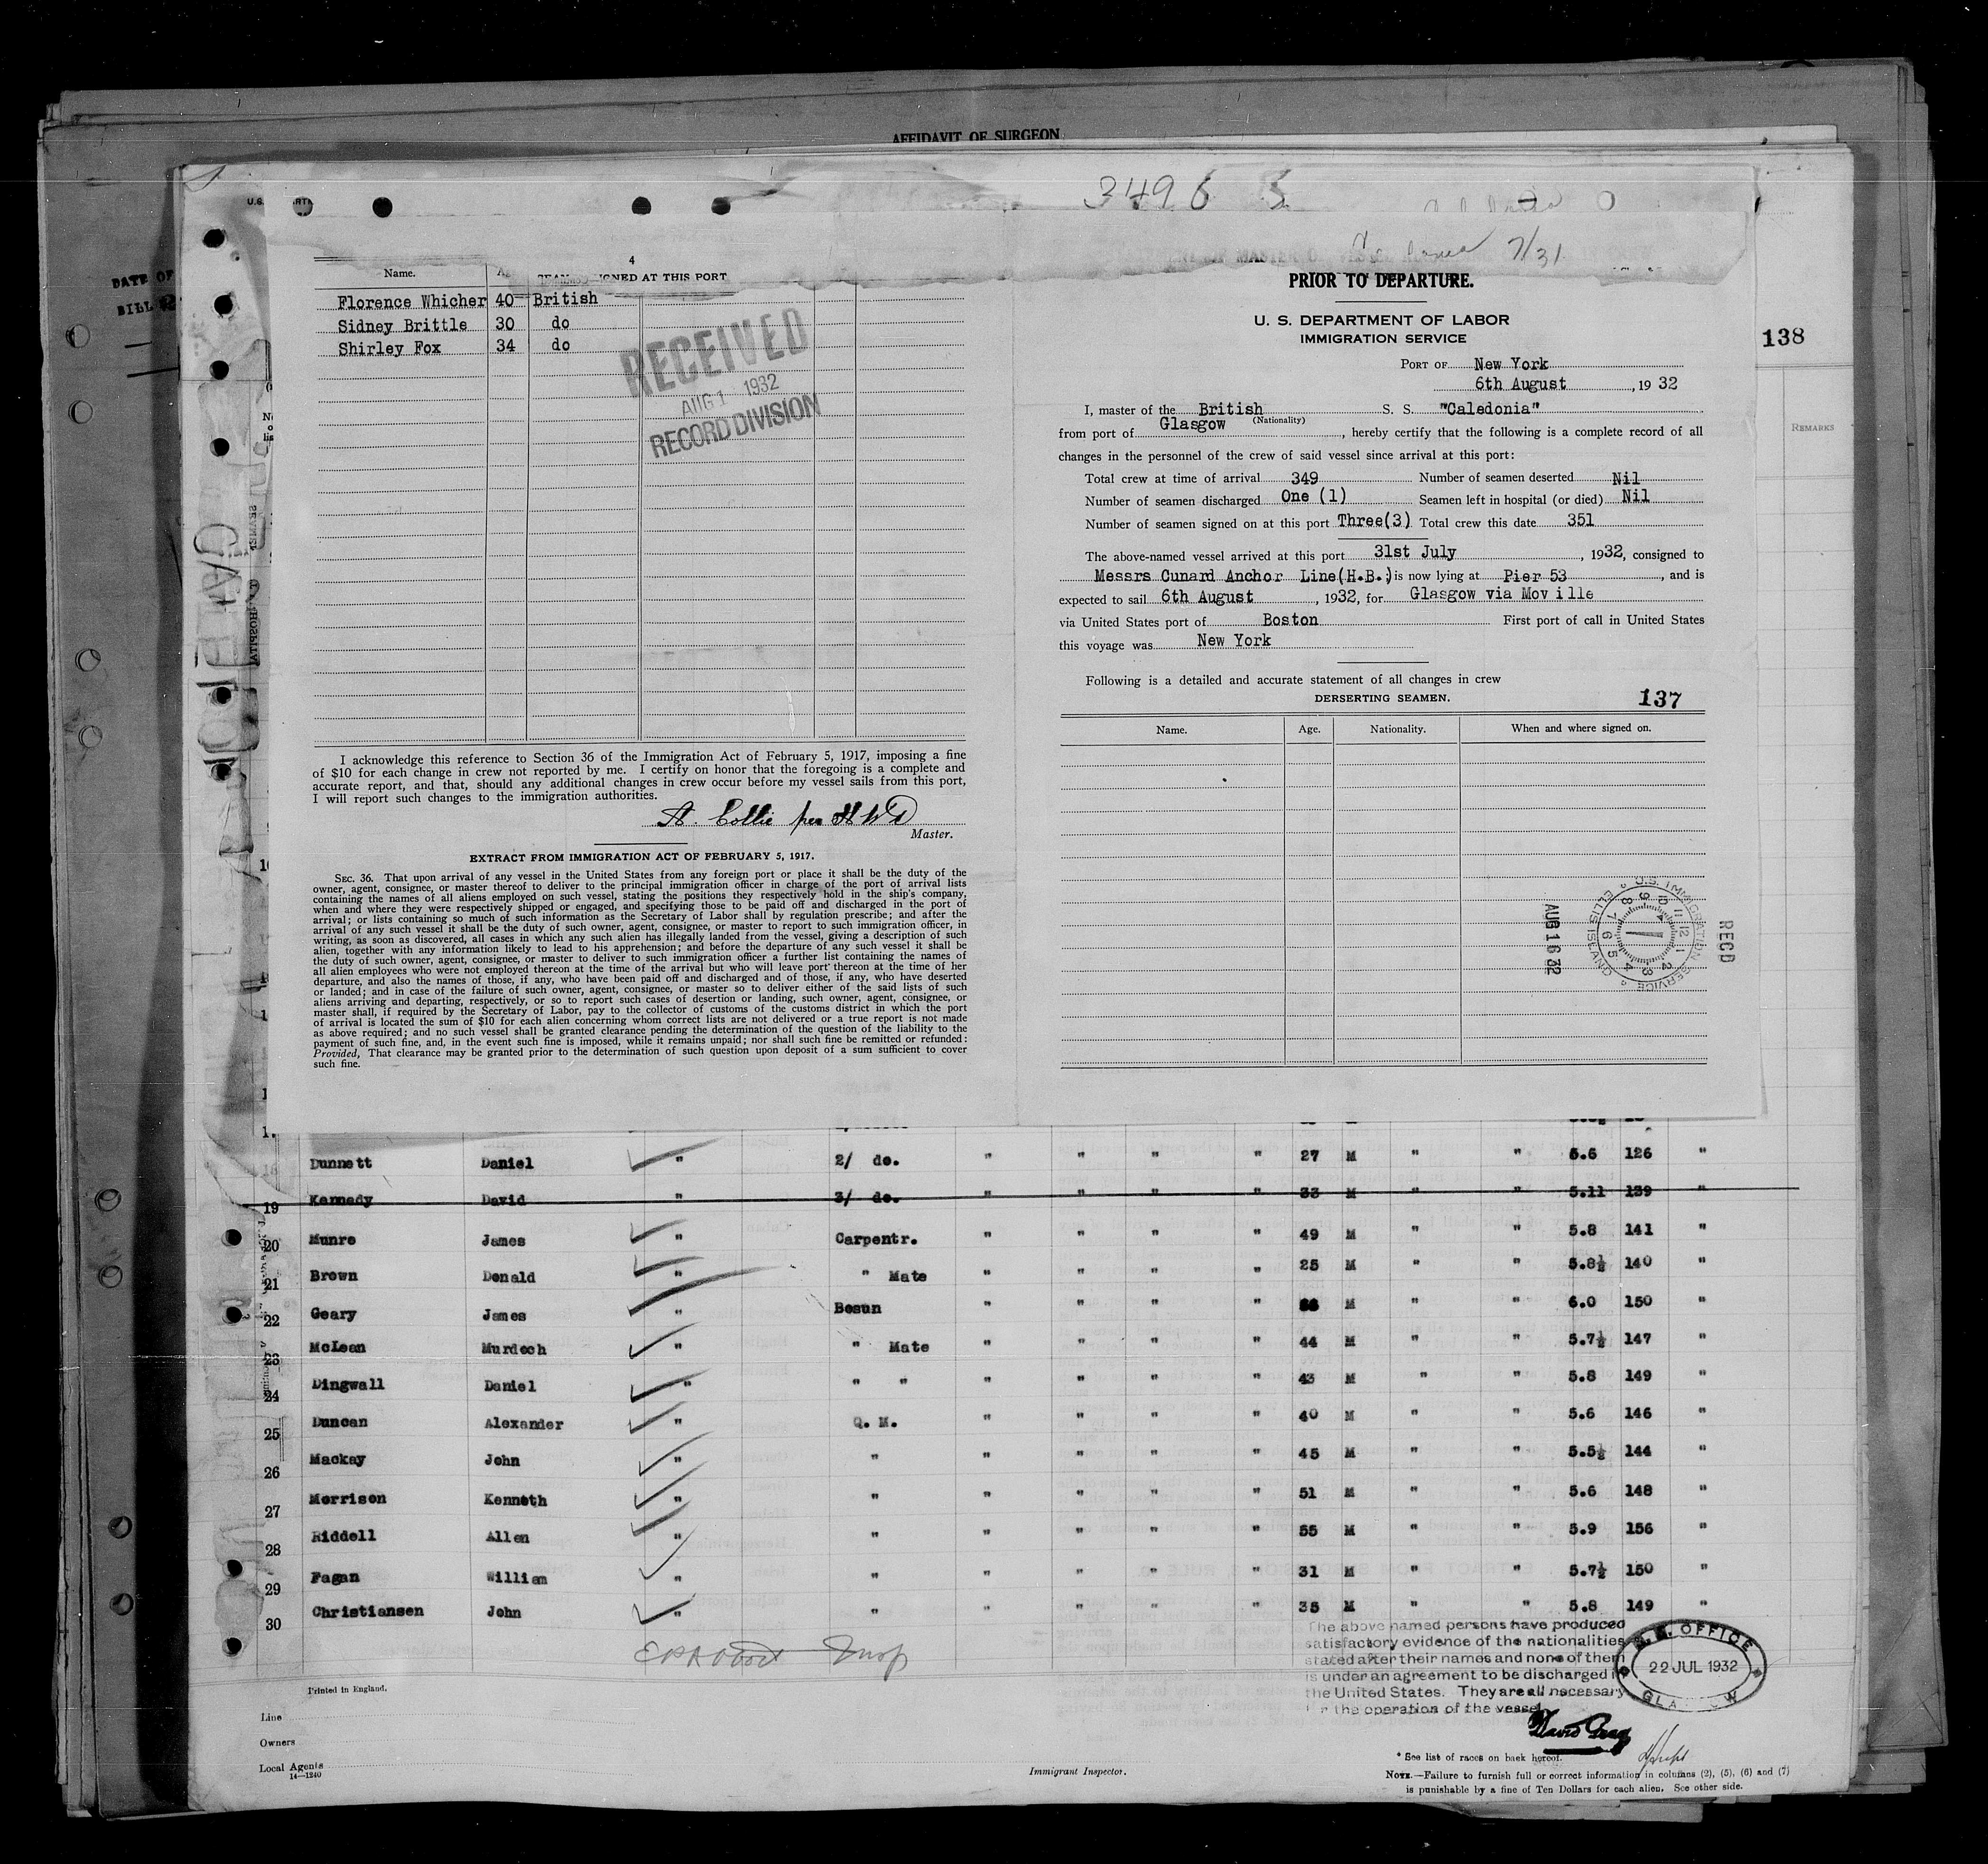 AFFIDAVIT OF SURGEON
3496
7/31
DATE OF
BILL
4
SIGNED AT THIS PORT
Name.
Florence Whicher 40 British
Sidney Brittle 30 do
Shirley Fox 34 do
RECEIVED
AUG 1 1932
RECORD DIVISION
I acknowledge this reference to Section 36 of the Immigration Act of February 5, 1917, imposing a fine
of $10 for each change in crew not reported by me. I certify on honor that the foregoing is a complete and
accurate report, and that, should any additional changes in crew occur before my vessel sails from this port,
I will report such changes to the immigration authorities.
A. Collie per
Master.
EXTRACT FROM IMMIGRATION ACT OF FEBRUARY 5, 1917.
SEC. 36. That upon arrival of any vessel in the United States from any foreign port or place it shall be the duty of the
owner, agent, consignee, or master thereof to deliver to the principal immigration officer in charge of the port of arrival lists
containing the names of all aliens employed on such vessel, stating the positions they respectively hold in the ship's company,
when and where they were respectively shipped or engaged, and specifying those to be paid off and discharged in the port of
arrival; or lists containing so much of such information as the Secretary of Labor shall by regulation prescribe; and after the
arrival of any such vessel it shall be the duty of such owner, agent, consignee, or master to report to such immigration officer, in
writing, as soon as discovered, all cases in which any such alien has illegally landed from the vessel, giving a description of such
alien, together with any information likely to lead to his apprehension; and before the departure of any such vessel it shall be
the duty of such owner, agent, consignee, or master to deliver to such immigration officer a further list containing the names of
all alien employees who were not employed thereon at the time of the arrival but who will leave port thereon at the time of her
departure, and also the names of those, if any, who have been paid off and discharged and of those, if any, who have deserted
or landed; and in case of the failure of such owner, agent, consignee, or master so to deliver either of the said lists of such
aliens arriving and departing, respectively, or so to report such cases of desertion or landing, such owner, agent, consignee, or
master shall, if required by the Secretary of Labor, pay to the collector of customs of the customs district in which the port
of arrival is located the sum of $10 for each alien concerning whom correct lists are not delivered or a true report is not made
as above required; and no such vessel shall be granted clearance pending the determination of the question of the liability to the
payment of such fine, and, in the event such fine is imposed, while it remains unpaid; nor shall such fine be remitted or refunded:
Provided, That clearance may be granted prior to the determination of such question upon deposit of a sum sufficient to cover
such fine.
PRIOR TO DEPARTURE.
U. S. DEPARTMENT OF LABOR
IMMIGRATION SERVICE
PORT OF New York
6th August, 1932
I, master of the British S. S. "Caledonia"
(Nationality)
from port of Glasgow, hereby certify that the following is a complete record of all
changes in the personnel of the crew of said vessel since arrival at this port:
Total crew at time of arrival 349 Number of seamen deserted Nil
Number of seamen discharged One (1) Seamen left in hospital (or died) Nil
Number of seamen signed on at this port Three(3) Total crew this date 351
The above-named vessel arrived at this port 31st July, 1932, consigned to
Messrs Cunard Anchor Line(H.B.) is now lying at Pier 53, and is
expected to sail 6th August, 1932, for Glasgow via Mov ille
via United States port of Boston First port of call in United States
this voyage was New York
Following is a detailed and accurate statement of all changes in crew
DERSERTING SEAMEN.
137
Name. Age. Nationality. When and where signed on.
U.S. IMMIGRATION SERVICE
ELLIS ISLAND
AUG 16 32
REC'D
138
REMARKS
18 Dunnett Daniel " 2/ do. " " " " 27 M " " 5.6 126 "
19 Kennedy David " 3/ do. " " " " 33 M " " 5.11 139 "
20 Munro James " Carpentr. " " " " 49 M " " 5.8 141 "
21 Brown Donald " " Mate " " " " 25 M " " 5.8½ 140 "
22 Geary James " Bosun " " " " M " " 6.0 150 "
23 McLean Murdoch " " Mate " " " " 44 M " " 5.7½ 147 "
24 Dingwall Daniel " " " " " " " 43 M " " 5.8 149 "
25 Duncan Alexander " Q. M. " " " " 40 M " " 5.6 146 "
26 Mackay John " " " " " " 45 M " " 5.5½ 144 "
27 Morrison Kenneth " " " " " " 51 M " " 5.6 148 "
28 Riddell Allan " " " " " " 55 M " " 5.9 156 "
29 Fagan William " " " " " " 31 M " " 5.7½ 150 "
30 Christiansen John " " " " " " 35 M " " 5.8 149 "
The above named persons have produced
satisfactory evidence of the nationalities
stated after their names and none of them
is under an agreement to be discharged i
the United States. They are all necessary
the operation of the vessel.
OFFICE
22 JUL 1932
GLA W
Printed in England.
Line
Owners
Local Agents
14—1240
Immigrant Inspector.
* See list of races on back hereof.
NOTE.—Failure to furnish full or correct information in columns (2), (5), (6) and (7)
is punishable by a fine of Ten Dollars for each alien. See other side.